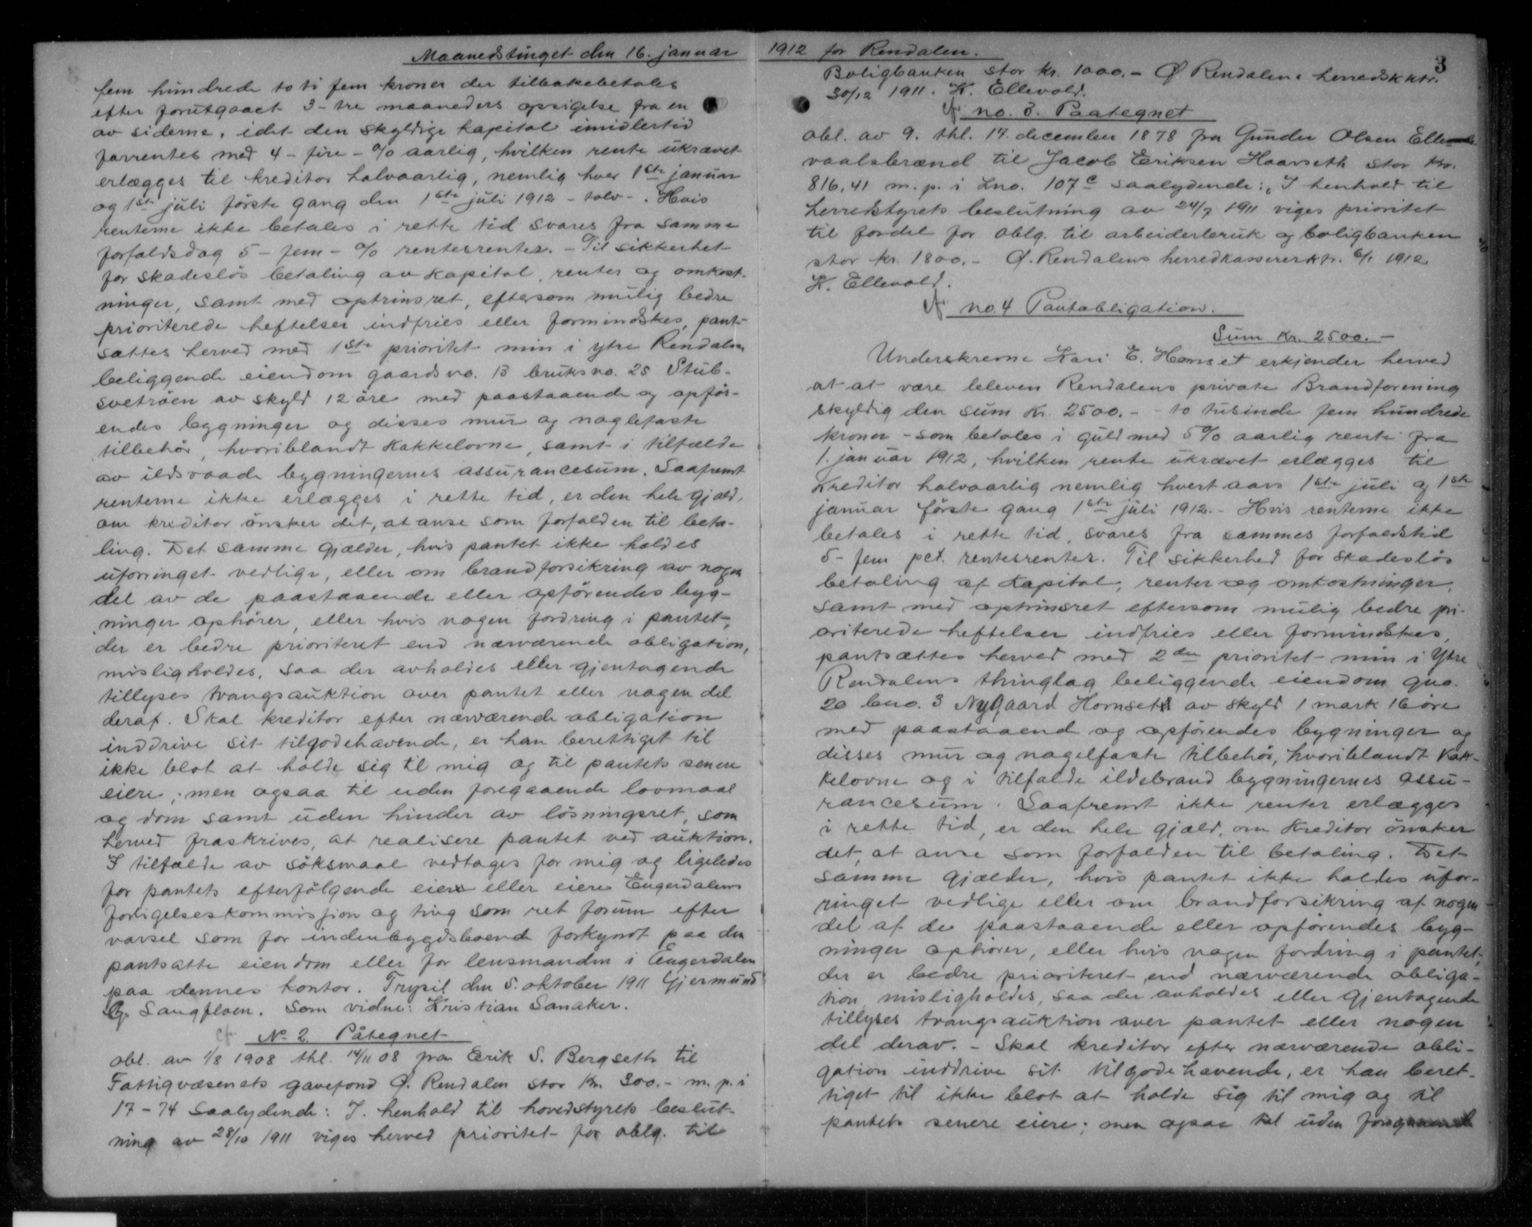 Maanedstinget den 16. januar 1912 for Rendalen.
3
fem hundrede to ti fem kroner der tilbakebetales
efter forutgaaet 3 - tre maaneders opsigelse fra en
av siderne, idet den skyldige kapital imidlertid
forrentes med 4 - fire - % aarlig, hvilken rente ukrævet
erlægges til kreditor halvaarlig, nemlig hver 1ste januar
og 1ste juli første gang den 1ste juli 1912 - tolv -. Hvis
renterne ikke betales i rette tid svares fra samme
forfaldsdag 5 - fem - % rentesrenter. - Til sikkerhet
for skadesløs betaling av kapital, renter og omkost-
ninger, samt med optrinsret, eftersom mulig bedre
prioriterede heftelser indfries eller formindskes, pant-
sættes herved med 1ste prioritet min i ytre Rendalen
beliggende eiendom gaardsno. 13 bruksno. 25 Stub-
svetrøen av skyld 12 øre med paastaaende og opfør-
endes bygninger og disses mur og naglefaste
tilbehør, hvoriblandt kakkelovne, samt i tilfælde
av ildsvaade bygningernes assurancesum. Saafremt
renterne ikke erlægges i rette tid, er den hele gjæld,
om kreditor ønsker det, at anse som forfalden til beta-
ling. Det samme gjælder, hvis pantet ikke holdes
uforringet vedlige, eller om brandforsikring av nogen
del av de paastaaende eller opførendes byg-
ninger ophører, eller hvis nogen fordring i pantet,
der er bedre prioriteret end nærværende obligation,
misligholdes, saa der avholdes eller gjentagende
tillyses tvangsauktion over pantet eller nogen del
deraf. Skal kreditor efter nærværende obligation
inddrive sit tilgodehavende, er han berettiget til
ikke blot at holde sig til mig og til pantets senere
eiere; men ogsaa til uden foregaaende lovmaal
og dom samt uden hinder av løsningsret, som
herved fraskrives, at realisere pantet ved auktion.
I tilfælde av søksmaal vedtages for mig og ligeledes
for pantets efterfølgende eier eller eiere Engerdalens
forligelseskommisjon og ting som ret forum efter
varsel som for indenbygdsboende forkynt paa den
pantsatte eiendom eller for lensmanden i Engerdalen
paa dennes kontor. Trysil den 5. oktober 1911 Gjermund
G. Sangfloen. Som vidne: Kristian Sanaker.
cf No 2. Påtegnet
obl. av 1/8 1908 thl. 14/11 08 fra Erik S. Bergseth til
Fattigvæsenets gavefond Ø. Rendalen stor Kr. 300.- m. p. i
17-74 saalydende: I. henhold til hovedstyrets beslut-
ning av 28/10 1911 viges herved prioritet for oblg. til
Boligbanken stor kr. 1000.- Ø Rendalens herredskktr.
30/12 1911. K. Ellevold.
cf no. 3. Paategnet
obl. av 9. thl. 17. december 1878 fra Gunder Olsen
vaalsbrænd til Jacob Eriksen Haarseth stor Kr.
816,41 m. p. i Lno. 107c saalydende: I henhold til
herredstyrets beslutning av 24/7 1911 viges prioritet
til fordel for oblg. til arbeiderbruk og boligbanken
stor kr. 1800.- Ø. Rendalens herredkassererktr. 6/1 1912
K. Ellevold.
cf no. 4 Pantobligation.
Sum Kr. 2500.-
Underskrevne Kari E. Hornset erkjender herved
at at være bleven Rendalens private Brandforening
skyldig den sum Kr. 2500.- - to tusinde fem hundrede
kroner - som betales i guld med 5% aarlig rente fra
1. januar 1912, hvilken rente ukrævet erlægges til
Kreditor halvaarlig nemlig hvert aars 1ste juli og 1ste
januar første gang 1ste juli 1912. - Hvis renterne ikke
betales i rette tid, svares fra sammes forfaldstid
5 - fem pct. rentesrenter. Til sikkerhed for skadesløs
betaling af Kapital, renter og omkostninger,
samt med optrinsret eftersom mulig bedre pri-
oriterede heftelser indfries eller formindskes,
pantsættes herved med 2den prioritet min i Ytre
Rendalens thinglag beliggende eiendom gno.
20 bno. 3 Nygaard Hornset av skyld 1 mark 16 øre
med paastaaend og opførendes bygninger og
disses mur og nagelfaste tilbehør, hvoriblandt Kak-
kelovne og i tilfælde ildebrand bygningernes assu-
rancesum. Saafremt ikke renter erlægges
i rette tid, er den hele gjæld, om Kreditor ønsker
det, at anse som forfalden til betaling. Det
samme gjælder, hvis pantet ikke holdes ufor-
ringet vedlige eller om brandforsikring af nogen
del af de paastaaende eller opførendes byg-
ninger ophører, eller hvis nogen fordring i pantet,
der er bedre prioriteret end nærværende obliga-
tion, misligholdes, saa der avholdes eller gjentagende
tillyses tvangsauktion over pantet eller nogen
del derav. - Skal kreditor efter nærværende obli-
gation inddrive sit tilgodehavende, er han beret-
tiget til ikke blot at holde sig til mig og til
pantets senere eiere; men ogsaa til uden foregaaende